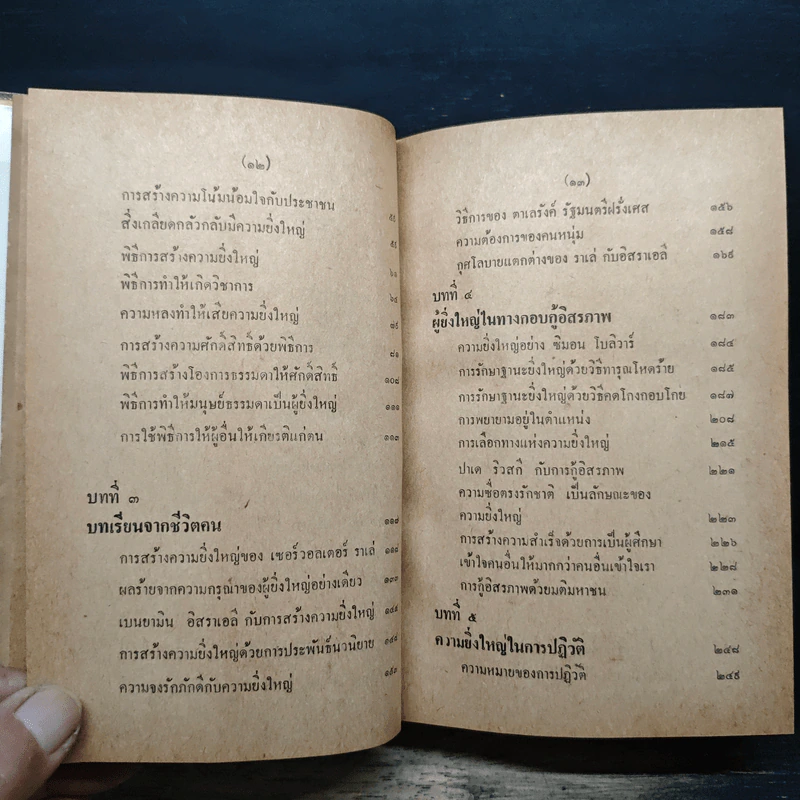 (๑๒)
การสร้างความโน้มน้อมใจกับประชาชน
สิ่งเกลียดกลัวกลับมีความยิ่งใหญ่
พิธีการสร้างความยิ่งใหญ่
พิธีการทำให้เกิดวิชาการ
ความหลงทำให้เสียความยิ่งใหญ่
การสร้างความศักดิ์สิทธิ์ด้วยพิธีการ
พิธีการสร้างโองการธรรมดาให้ศักดิ์สิทธิ์ ๑๐๘
พิธีการทำให้มนุษย์ธรรมดาเป็นผู้ยิ่งใหญ่ ๑๑๑
การใช้พิธีการให้ผู้อื่นให้เกียรติแก่ตน ๑๑๓
บทที่ ๓
บทเรียนจากชีวิตคน ๑๑๗
การสร้างความยิ่งใหญ่ของ เซอร์วอลเตอร์ ราเล่ ๑๑๘
ผลร้ายจากความกรุณาของผู้ยิ่งใหญ่อย่างเดียว
เบนยามิน อิสราเอลี กับการสร้างความยิ่งใหญ่
การสร้างความยิ่งใหญ่ด้วยการประพันธ์นวนิยาย
ความจงรักภักดีกับความยิ่งใหญ่
(๑๓)
วิธีการของ ตาเลรังค์ รัฐมนตรีฝรั่งเศส ๑๕๖
ความต้องการของคนหนุ่ม ๑๕๘
กุศโลบายแตกต่างของ ราเล่ กับอิสราเอลี ๑๖๙
บทที่ ๔
ผู้ยิ่งใหญ่ในทางกอบกู้อิสรภาพ ๑๘๓
ความยิ่งใหญ่อย่าง ซิมอน โบลิวาร์ ๑๘๔
การรักษาฐานะยิ่งใหญ่ด้วยวิธีทารุณโหดร้าย ๑๘๕
การรักษาฐานะยิ่งใหญ่ด้วยวิธีคดโกงกอบโกย ๑๘๗
การพยายามอยู่ในตำแหน่ง ๒๐๘
การเลือกทางแห่งความยิ่งใหญ่ ๒๑๕
ปาเด ริวสกี กับการกู้อิสรภาพ ๒๒๑
ความซื่อตรงรักชาติ เป็นลักษณะของ
ความยิ่งใหญ่ ๒๒๓
การสร้างความสำเร็จด้วยการเป็นผู้ศึกษา ๒๒๖
เข้าใจคนอื่นให้มากกว่าคนอื่นเข้าใจเรา ๒๒๘
การกู้อิสรภาพด้วยมติมหาชน ๒๓๑
บทที่ ๕
ความยิ่งใหญ่ในการปฏิวัติ ๒๔๘
ความหมายของการปฏิวัติ ๒๔๙